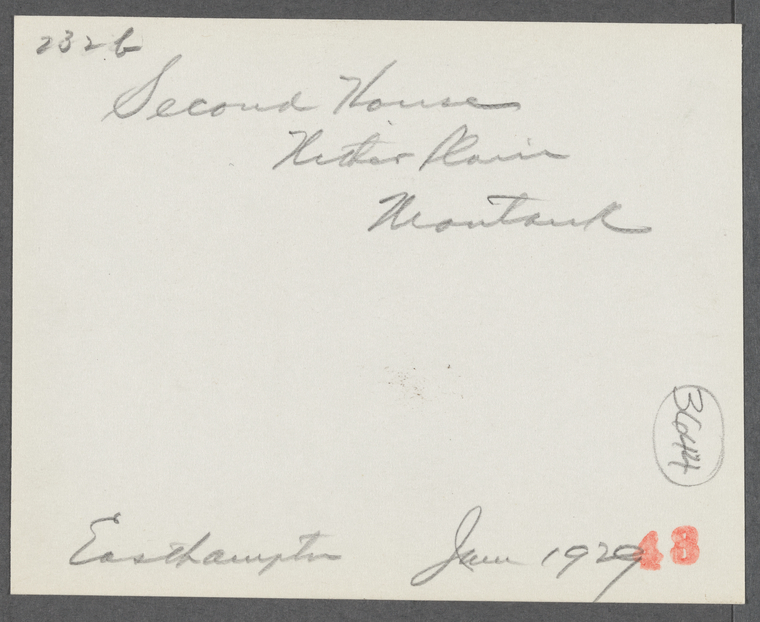 232b
Second House
Hither Plain
Montauk
3644
Easthampton June 1929 43